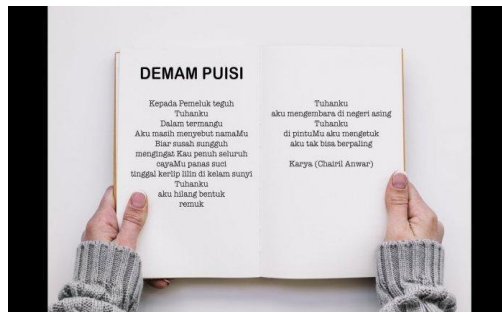 DEMAM PUISI
Kepada Pemeluk teguh
Tuhanku
Dalam termangu
Aku masih menyebut namaMu
Biar susah sungguh
mengingat Kau penuh seluruh
cayaMu panas suci
tinggal kerlip lilin di kelam sunyi
Tuhanku
aku hilang bentuk
remuk
Tuhanku
aku mengembara di negeri asing
Tuhanku
di pintuMu aku mengetuk
aku tak bisa berpaling
Karya (Chairil Anwar)